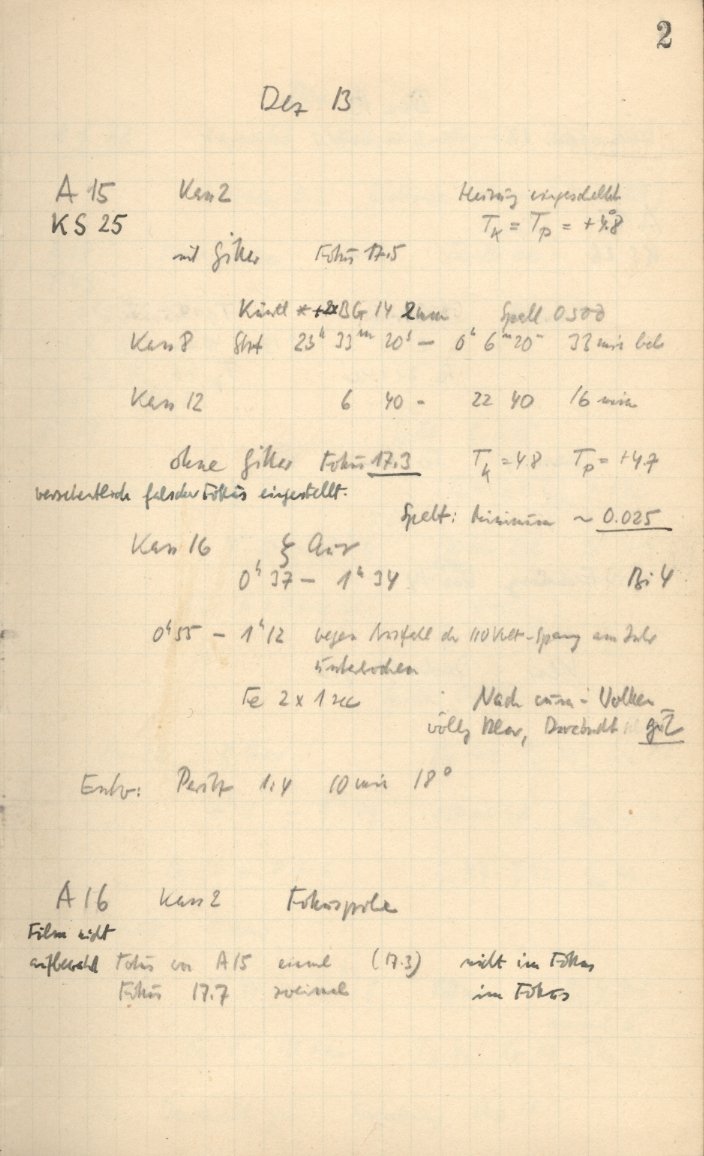 2
Dez 13
A 15 Kass 2 Heizung eingeschaltet
KS 25 T_K = T_P = +4.8°
mit Gitter Fokus 17.5
BG 14 2mm Spalt 0.500
Kass 8 23ʰ 33ᵐ 20ˢ – 0ʰ 6ᵐ 20ˢ 33 min
Kass 12 6 40 – 22 40 16 min
ohne Gitter Fokus 17.3 T_K = 4.8 T_P = +4.7
versehentlich falscher Fokus eingestellt.
Spalt: Minimum ~ 0.025
Kass 16 ξ Aur
0ʰ 37 – 1ʰ 34 Bi 4
0ʰ 55 – 1ʰ 12 wegen Ausfall der 110 Volt-Spang am
unterbrochen
Fe 2 x 1 sec Nach Wolken
völlig klar, Durchsicht gut
Entw: 1:4 10 min 18°
A 16 Kass 2 Fokusprobe
Film nicht
aufbewahrt Fokus von A 15 einmal (17.3) nicht im Fokus
Fokus 17.7 zweimal im Fokus